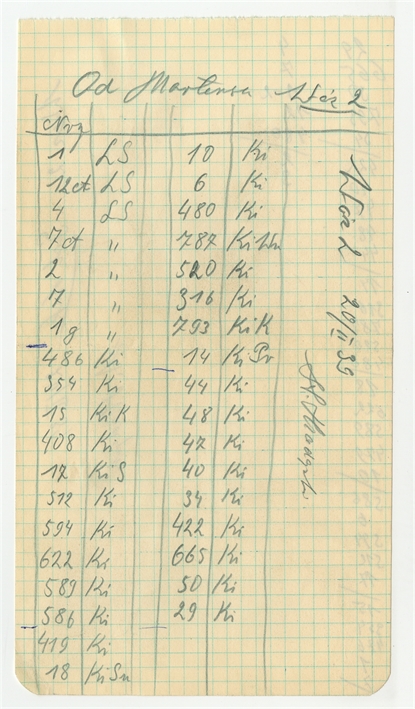 Od Martensa Wóz 2
Nry
1 LS 10 Ki
12a LS 6 Ki
4 LS 480 Ki
7a " 787 Ki
2 " 520 Ki
7 " 316 Ki
1g " 793 KiK
486 Ki 14 KiPr
354 Ki 44 Ki
15 KiK 48 Ki
408 Ki 42 Ki
17 KiS 40 Ki
512 Ki 34 Ki
594 Ki 422 Ki
622 Ki 665 Ki
589 Ki 50 Ki
586 Ki 29 Ki
419 Ki
18 KiSn
Wóz 2 20/II 39